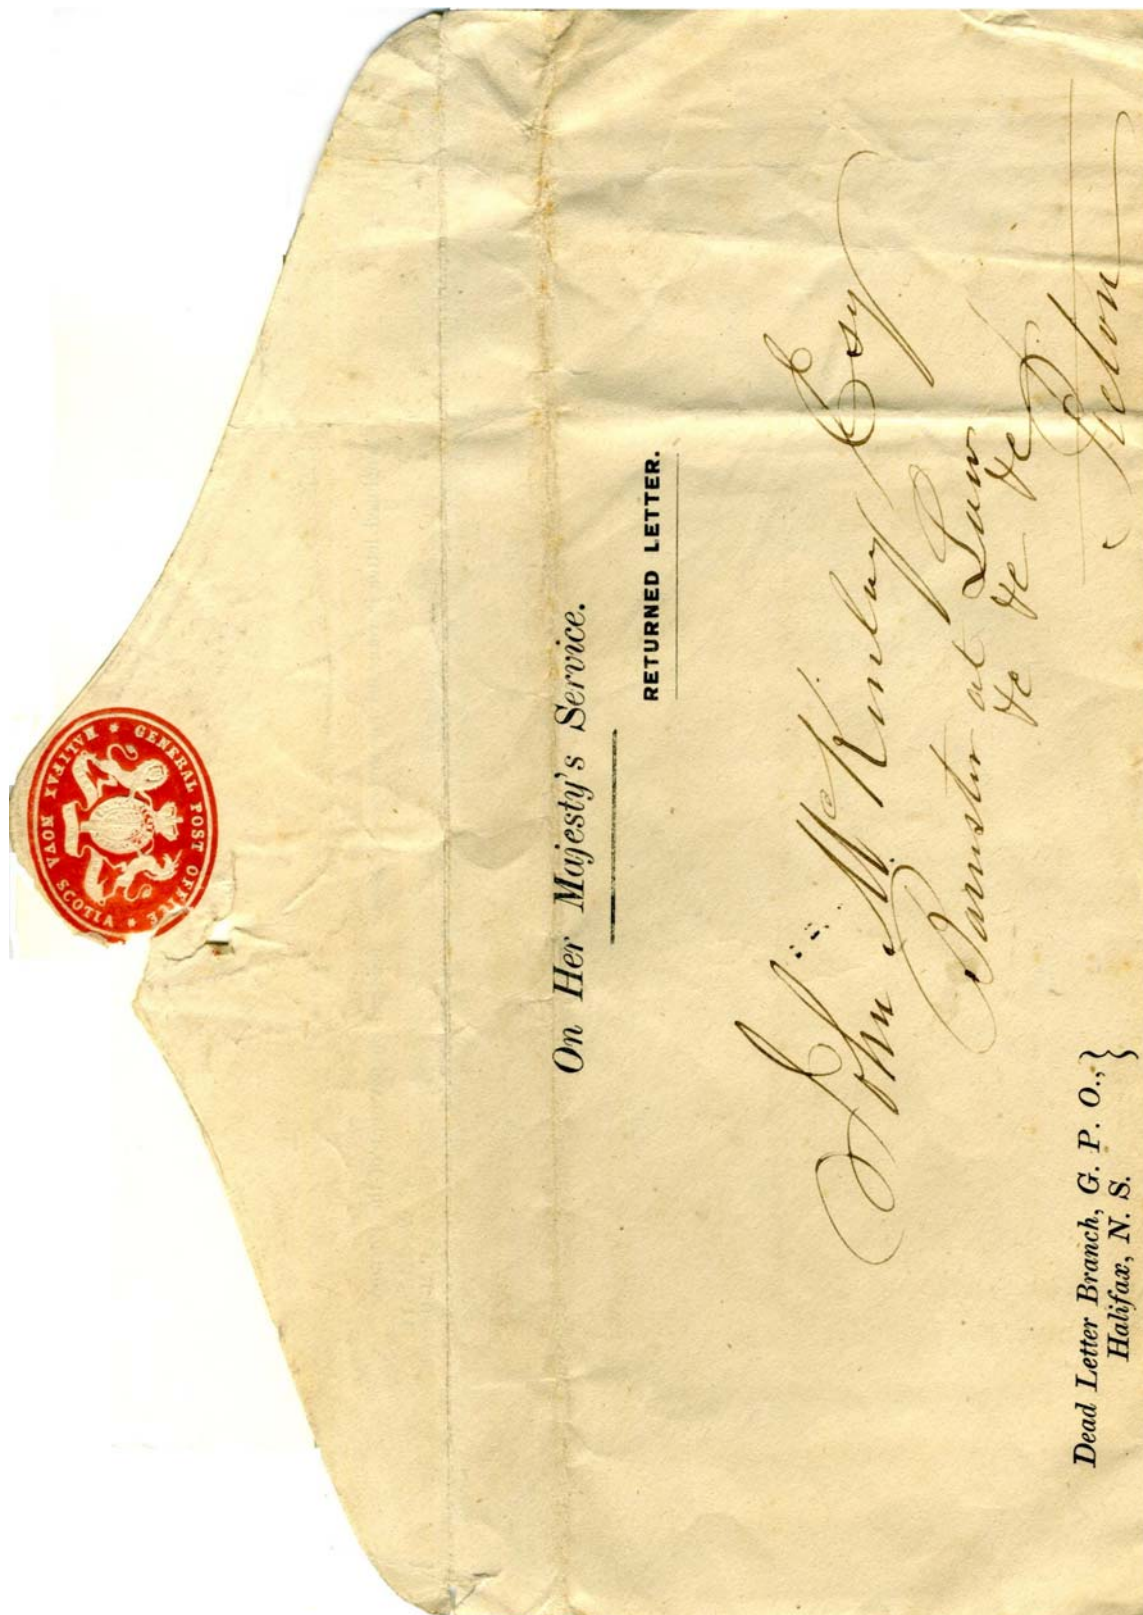 GENERAL POST OFFICE * HALIFAX NOVA SCOTIA *
On Her Majesty's Service.
RETURNED LETTER.
John McKinlay Esq
Barrister at Law
&c &c &c
Pictou
Dead Letter Branch, G. P. O.,}
Halifax, N. S.